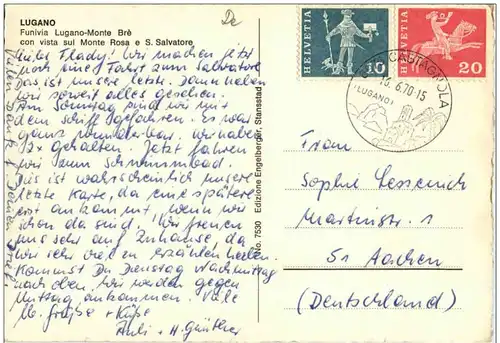 LUGANO
Funivia Lugano-Monte Brè
con vista sul Monte Rosa e S. Salvatore
De
Liebe Flady! Wir machen jetzt
noch eine Fahrt zum Salvatore
Das ist unsere letzte. Dann haben
wir soweit alles gesehen.
Am Sonntag sind wir mit
dem Schiff gefahren. Es war
ganz wunderbar. Wir haben
12x gehalten. Jetzt fahren
wir zum Schwimmbad.
Dies ist wahrscheinlich unsere
letzte Karte, da eine spätere
erst ankommt, wenn wir
schon da sind. Wir freuen
uns sehr auf Zuhause, da
wir sehr viel zu erzählen haben.
Kommst Du Dienstag Nachmittag
nach oben? Wir werden gegen
Mittag ankommen. Viele
lb. Grüße + Küße
+ H. Günther
Vielen Dank f. Deinen Brief.
No. 7530 Edizione Engelberger, Stansstad
HELVETIA
10
HELVETIA
20
CASTAGNOLA
6.70-15
(LUGANO)
From:
Sophie Lessenich
Martinstr. 1
51 Aachen
(Deutschland)